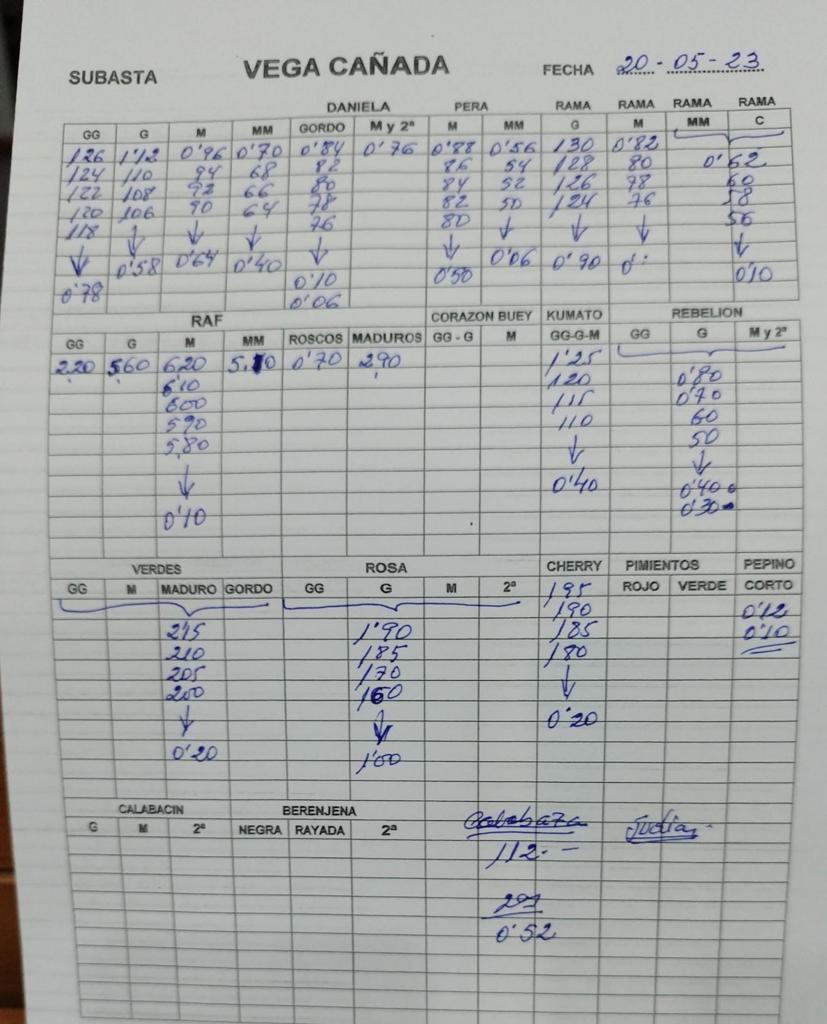 SUBASTA VEGA CAÑADA FECHA 20-05-23
DANIELA PERA RAMA RAMA RAMA RAMA
GG G M MM GORDO M y 2ª M MM G M MM C
126 1'12 0'96 0'70 0'84 0'76 0'88 0'56 130 0'82 0'62
124 110 94 68 82 86 54 128 80 60
122 108 92 66 80 84 52 126 78 58
120 106 90 64 78 82 50 124 76 56
118 76 80
0'78 0'58 0'64 0'40 0'10 0'50 0'06 0'90 0'10
0'06
RAF CORAZON BUEY KUMATO REBELION
GG G M MM ROSCOS MADUROS GG - G M GG-G-M GG G M y 2ª
2.20 5.60 6.20 5.10 0'70 2.90 1'25
6'10 120 0'80
600 115 0'70
590 110 60
5.80 50
0'10 0'40 0'40
0'30
VERDES ROSA CHERRY PIMIENTOS PEPINO
GG M MADURO GORDO GG G M 2ª 195 ROJO VERDE CORTO
190 0'12
215 1'90 185 0'10
210 185 180
205 170
200 160
0'20 1'00 0'20
CALABACIN BERENJENA
G M 2ª NEGRA RAYADA 2ª
Calabaza Judias
112.-
0'52